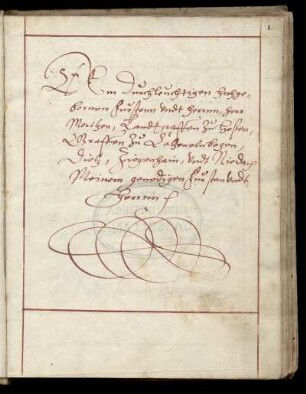 1.
Dem Durchleuchtigen Hochge-
bornen Fürsten undt Herrnn, Herr
Moritzen, Landtgraffen zu Hessen,
Graffen zu Catzenelnbogen,
Dietz, Ziegenhain, undt Nidda,
Meinem genedigen Fürsten undt
Herrnn